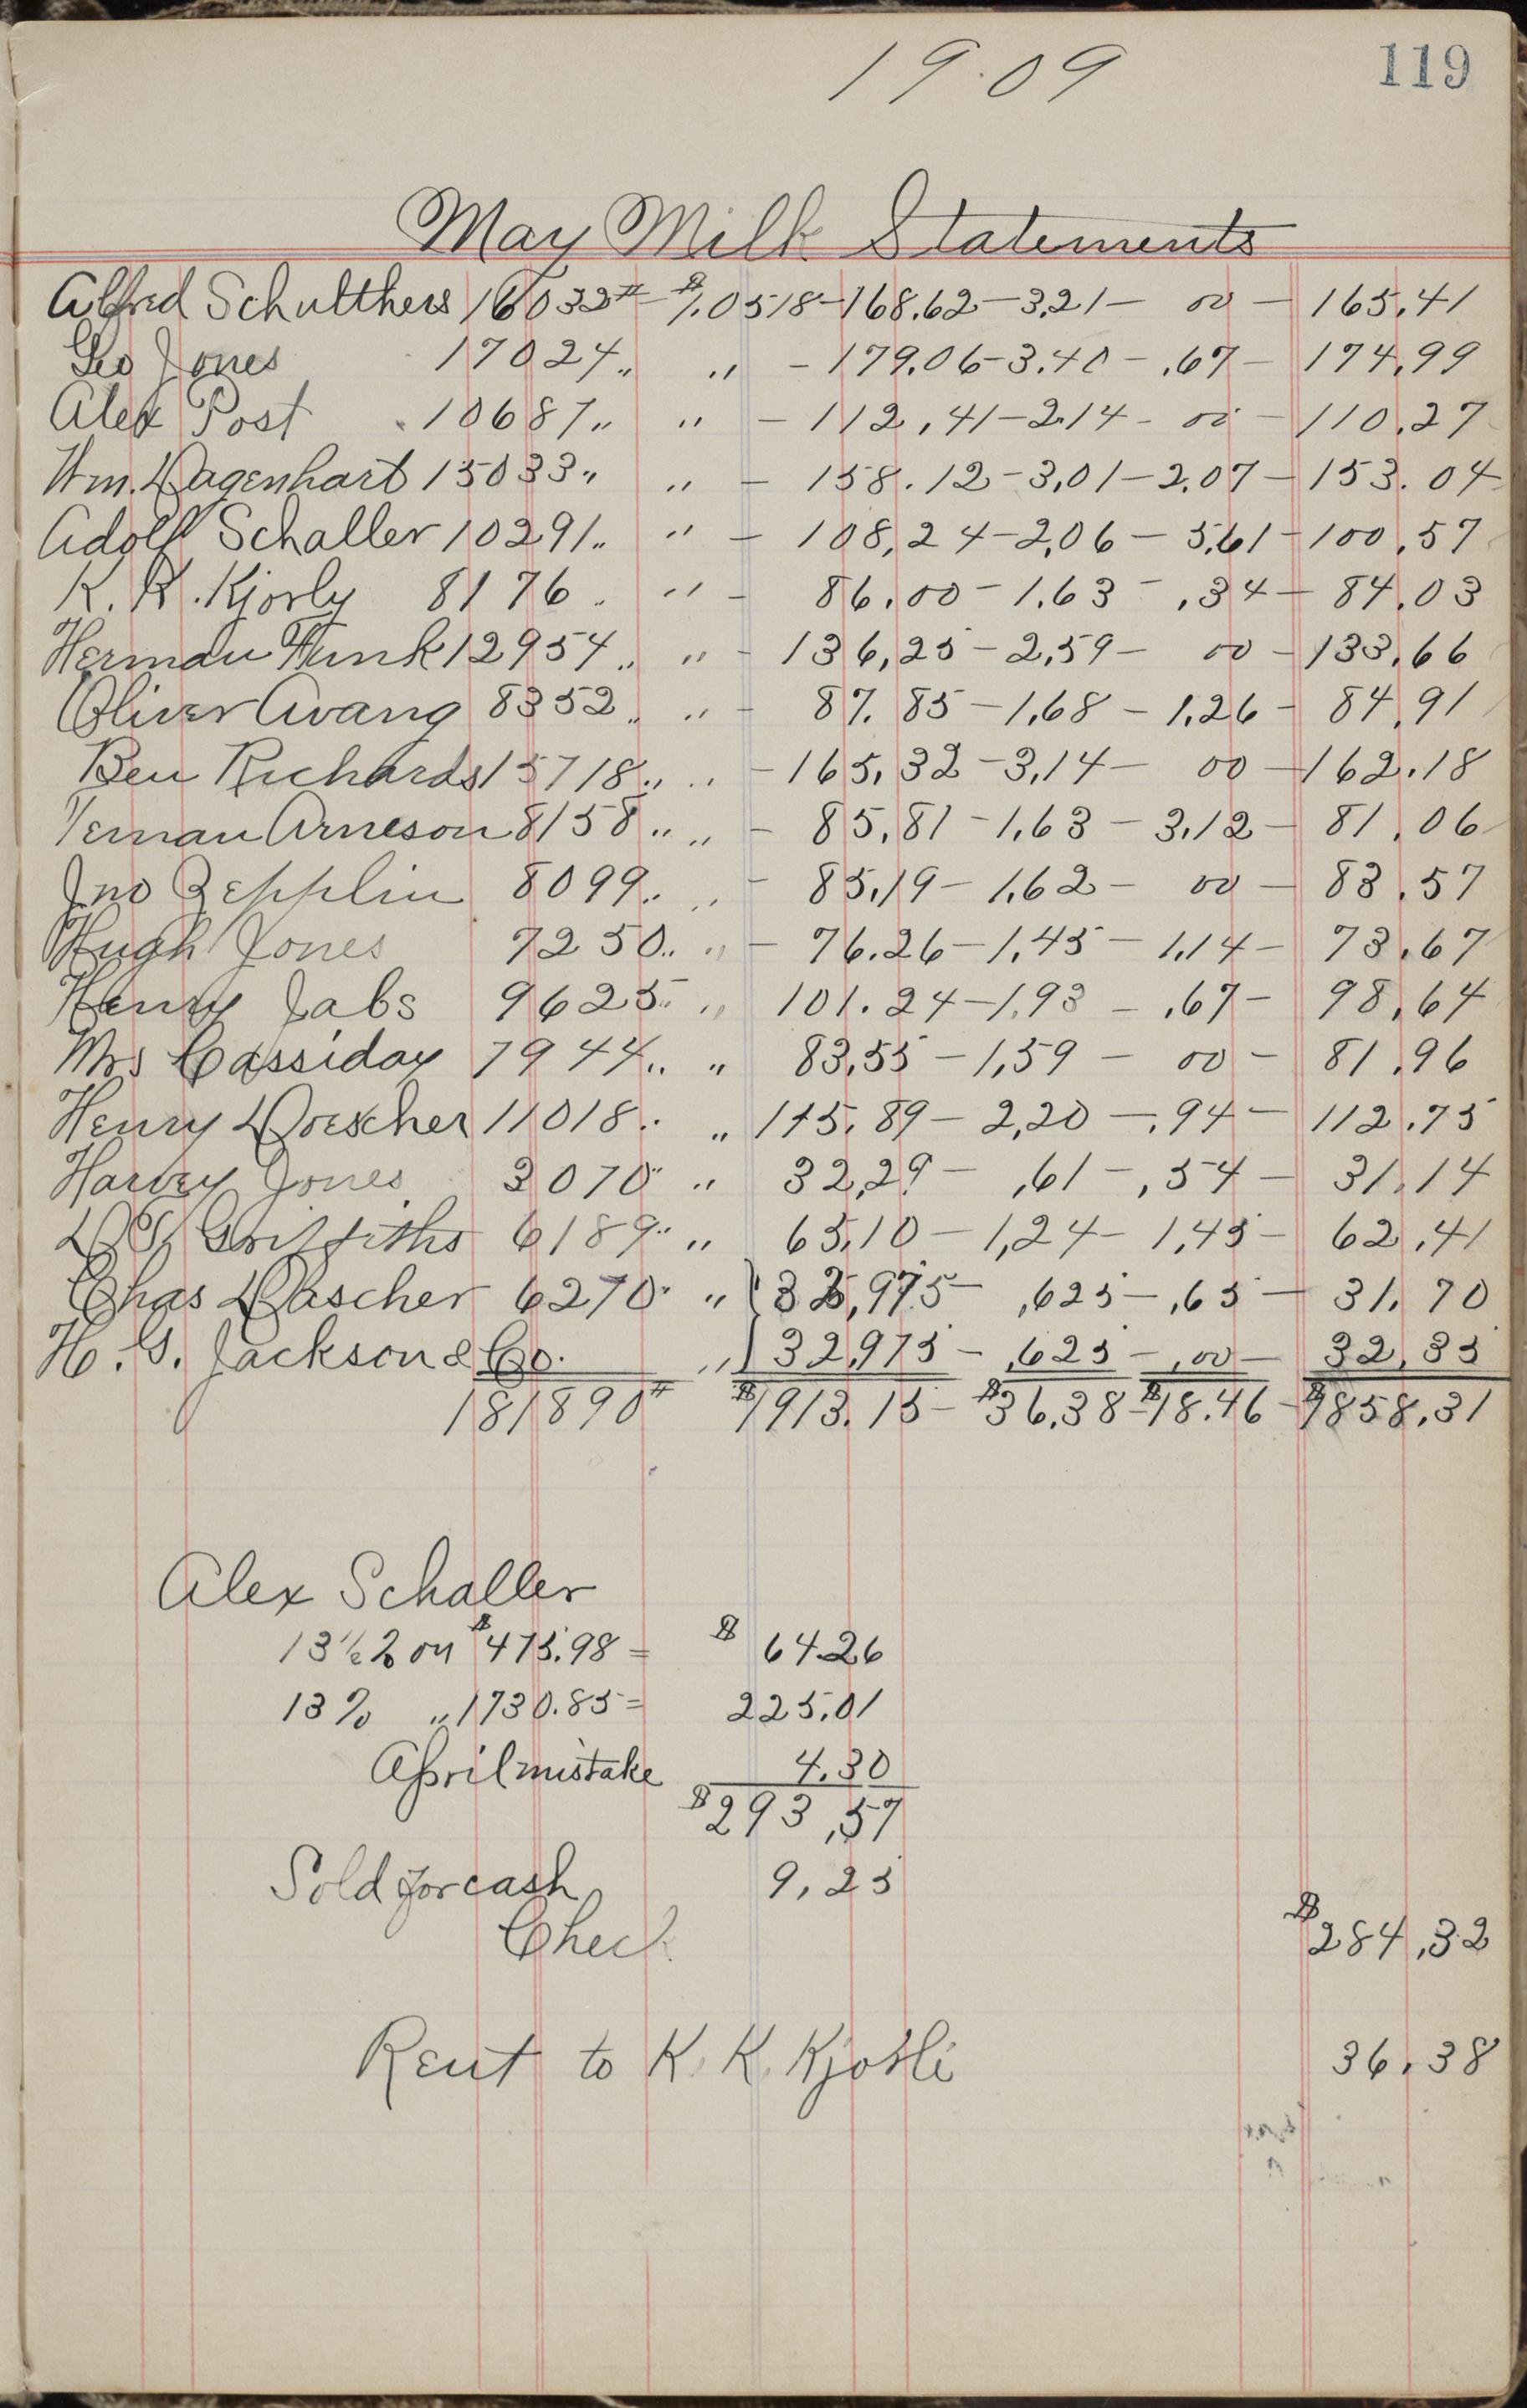 119
19.09
May Milk Statements
Alfred Schulthess 16032# - $1.0518 - 168.62 - 3.21 - 00 - 165.41
Geo Jones 17024 " " - 179.06 - 3.40 - .67 - 174.99
Alex Post 10687 " " - 112.41 - 2.14 - 00 - 110.27
Wm. Dagenhart 15033 " " - 158.12 - 3.01 - 2.07 - 153.04
Adolf Schaller 10291 " " - 108.24 - 2.06 - 5.61 - 100.57
K. K. Kjosly 8176 " " - 86.00 - 1.63 - .34 - 84.03
Herman Funk 12954 " " - 136.25 - 2.59 - 00 - 133.66
Oliver Avang 8352 " " - 87.85 - 1.68 - 1.26 - 84.91
Ben Richards 15718 " " - 165.32 - 3.14 - 00 - 162.18
Arneson 8158 " " - 85.81 - 1.63 - 3.12 - 81.06
Jno Zepplin 8099 " " - 85.19 - 1.62 - 00 - 83.57
Hugh Jones 7250 " " - 76.26 - 1.45 - 1.14 - 73.67
Henry Jabs 9625 " " 101.24 - 1.93 - .67 - 98.64
Mrs Cassiday 7944 " " 83.55 - 1.59 - 00 - 81.96
Henry Doescher 11018 " " 115.89 - 2.20 - .94 - 112.75
Harvey Jones 3070 " " 32.29 - .61 - .54 - 31.14
Griffiths 6189 " " 65.10 - 1.24 - 1.45 - 62.41
Chas Dascher 6270 " " } 32,975 - ,625 - ,65 - 31.70
H. G. Jackson & Co. " } 32,975 - ,625 - ,00 - 32,35
181890# $1913.15 - $36.38 - $18.46 - $1858.31
Alex Schaller
13 1/2 % on $475.98 = $ 64.26
13% " 1730.85 = 225.01
April mistake 4.30
$293.57
Sold for cash 9.25
Check $284.32
Rent to K. K. Kjosli 36.38